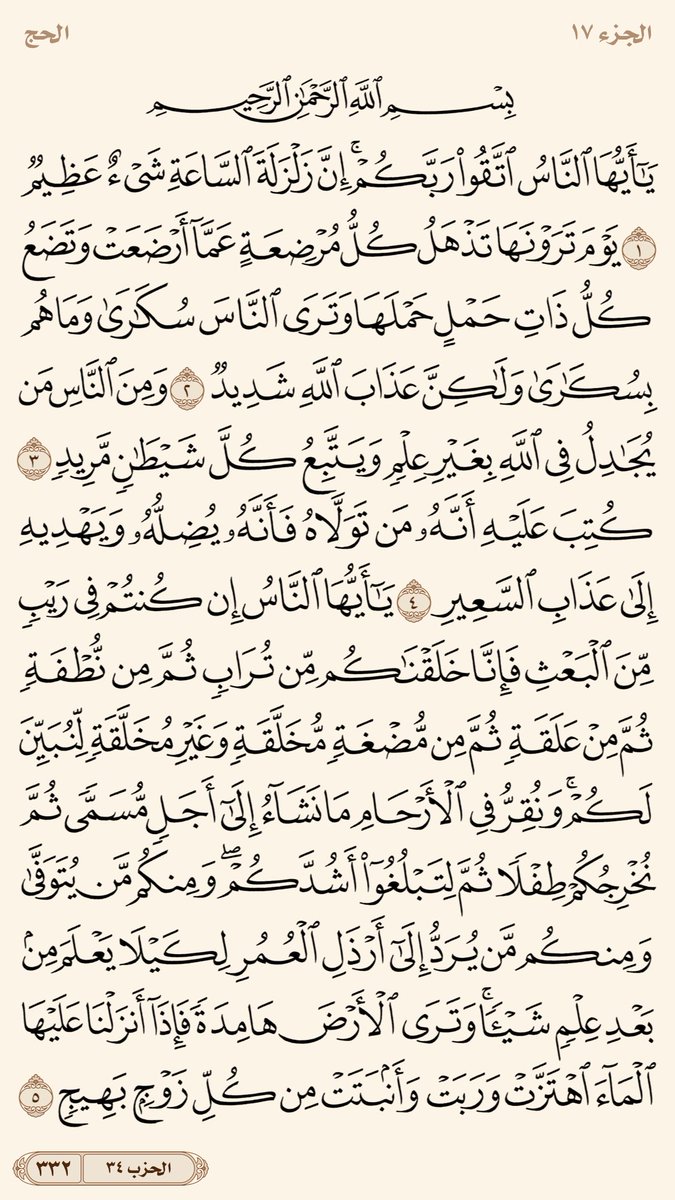 الجزء ١٧
الحج
بِسْمِ ٱللَّهِ ٱلرَّحْمَٰنِ ٱلرَّحِيمِ
يَٰٓأَيُّهَا ٱلنَّاسُ ٱتَّقُوا۟ رَبَّكُمْ ۚ إِنَّ زَلْزَلَةَ ٱلسَّاعَةِ شَىْءٌ عَظِيمٌ
١ يَوْمَ تَرَوْنَهَا تَذْهَلُ كُلُّ مُرْضِعَةٍ عَمَّآ أَرْضَعَتْ وَتَضَعُ
كُلُّ ذَاتِ حَمْلٍ حَمْلَهَا وَتَرَى ٱلنَّاسَ سُكَٰرَىٰ وَمَا هُم
بِسُكَٰرَىٰ وَلَٰكِنَّ عَذَابَ ٱللَّهِ شَدِيدٌ ٢ وَمِنَ ٱلنَّاسِ مَن
يُجَٰدِلُ فِى ٱللَّهِ بِغَيْرِ عِلْمٍ وَيَتَّبِعُ كُلَّ شَيْطَٰنٍ مَّرِيدٍ ٣
كُتِبَ عَلَيْهِ أَنَّهُۥ مَن تَوَلَّاهُ فَأَنَّهُۥ يُضِلُّهُۥ وَيَهْدِيهِ
إِلَىٰ عَذَابِ ٱلسَّعِيرِ ٤ يَٰٓأَيُّهَا ٱلنَّاسُ إِن كُنتُمْ فِى رَيْبٍ
مِّنَ ٱلْبَعْثِ فَإِنَّا خَلَقْنَٰكُم مِّن تُرَابٍ ثُمَّ مِن نُّطْفَةٍ
ثُمَّ مِنْ عَلَقَةٍ ثُمَّ مِن مُّضْغَةٍ مُّخَلَّقَةٍ وَغَيْرِ مُخَلَّقَةٍ لِّنُبَيِّنَ
لَكُمْ ۚ وَنُقِرُّ فِى ٱلْأَرْحَامِ مَا نَشَآءُ إِلَىٰٓ أَجَلٍ مُّسَمًّى ثُمَّ
نُخْرِجُكُمْ طِفْلًا ثُمَّ لِتَبْلُغُوٓا۟ أَشُدَّكُمْ ۖ وَمِنكُم مَّن يُتَوَفَّىٰ
وَمِنكُم مَّن يُرَدُّ إِلَىٰٓ أَرْذَلِ ٱلْعُمُرِ لِكَيْلَا يَعْلَمَ مِنۢ
بَعْدِ عِلْمٍ شَيْـًٔا ۚ وَتَرَى ٱلْأَرْضَ هَامِدَةً فَإِذَآ أَنزَلْنَا عَلَيْهَا
ٱلْمَآءَ ٱهْتَزَّتْ وَرَبَتْ وَأَنۢبَتَتْ مِن كُلِّ زَوْجٍۭ بَهِيجٍ ٥
الحزب ٣٤
٣٣٢